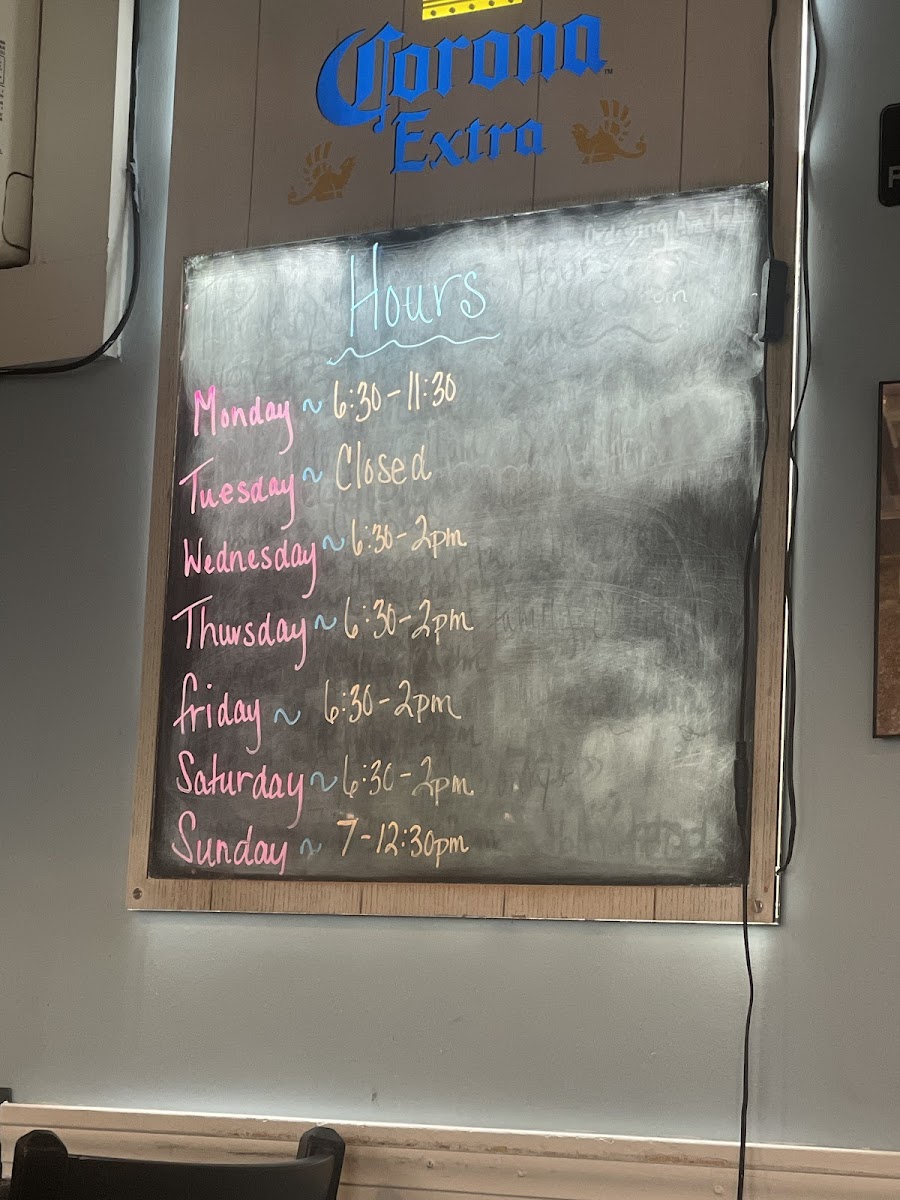 Corona
Extra
Hours
Monday ~ 6:30-11:30
Tuesday ~ Closed
Wednesday ~ 6:30-2pm
Thursday ~ 6:30-2pm
friday ~ 6:30-2pm
Saturday ~ 6:30-2pm
Sunday ~ 7-12:30pm